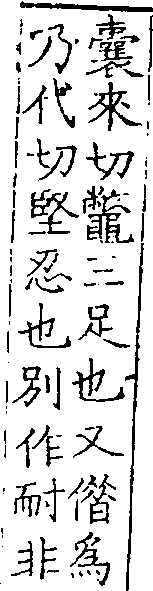 囊來切鼈三足也又僣為
乃代切堅忍也別作耐非